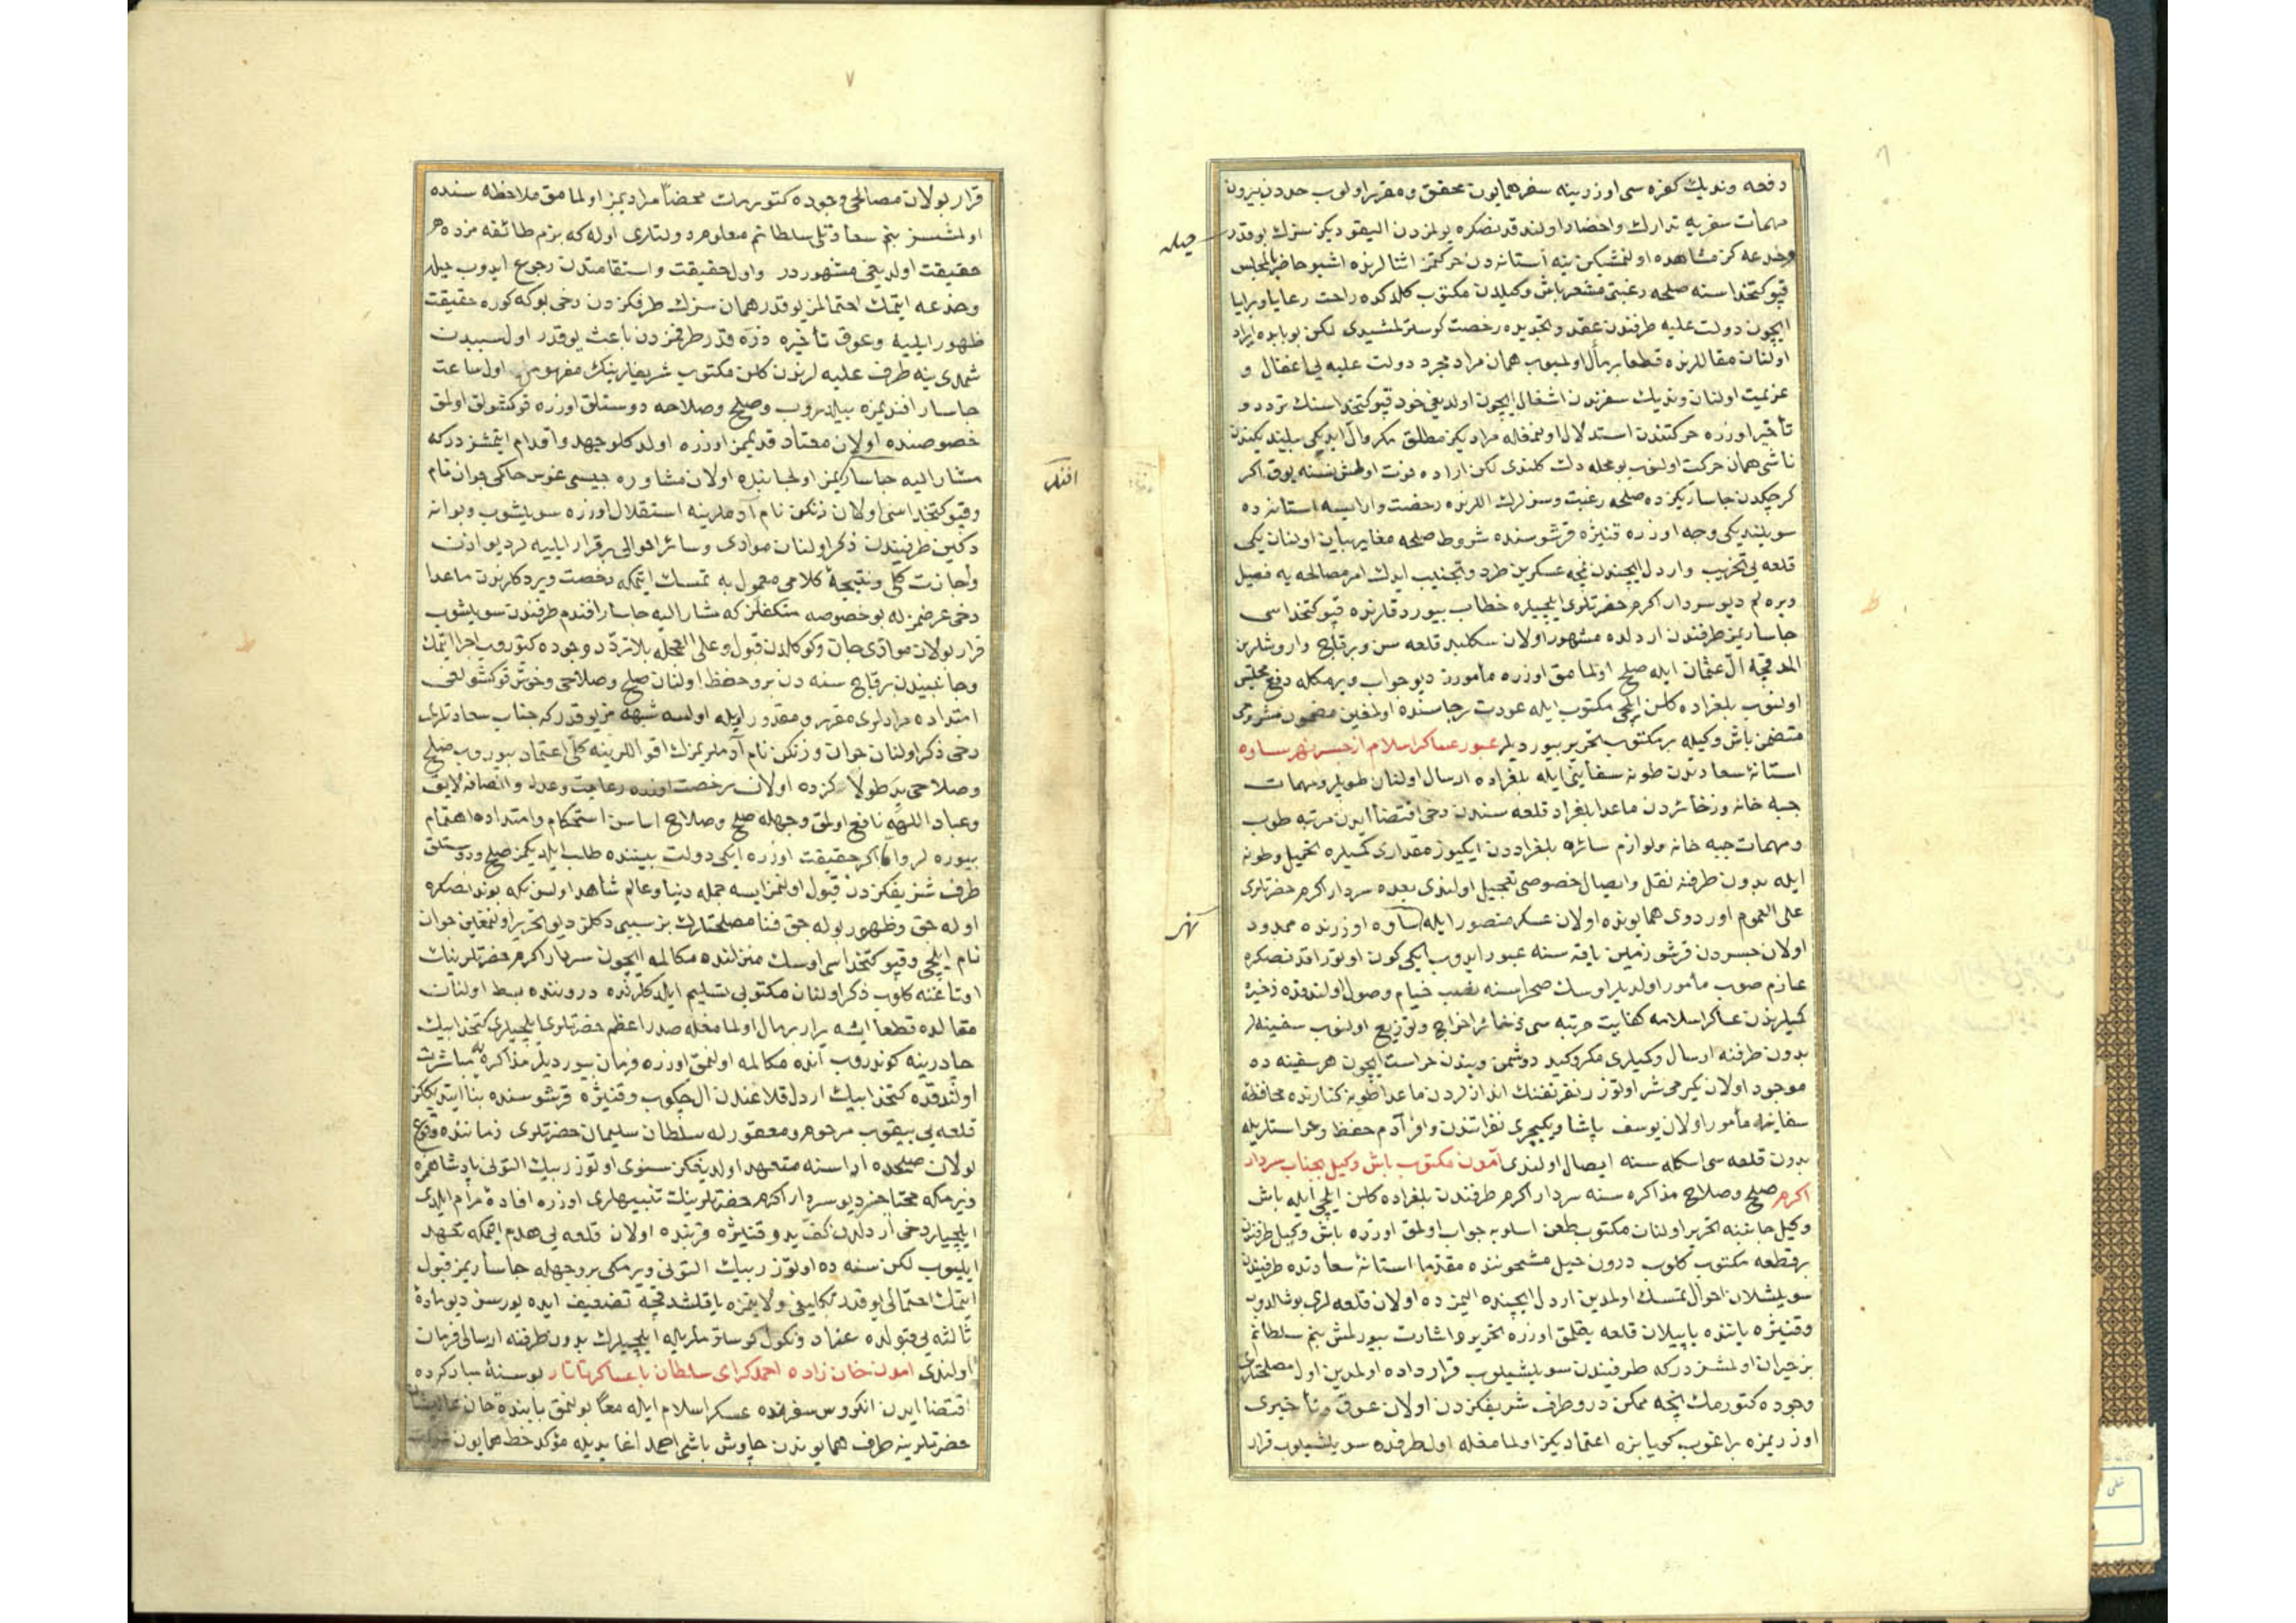 دفعه وندیك كفره سی اوزرینه سفر همایون محقق و مقرر اولوب حددن بیرون
مهمات سفریه تدارك واحضار اولندقدنصكره یولمزدن الیقودیكز سزك بوقدر
حیله
وخدعه كز مشاهده اولنمشیكن ینه آستانه دن حركتمز اثنالرنده اشبو حاضر بالمجلس
قپو كتخداسنه صلحه رغبتی مشعر باش وكیلدن مكتوب كلدكده راحت رعایا وبرایا
ایچون دولت علیه طرفندن عقد وتجدیده رخصت كوسترلمشیدی لكن بو بابده ایراد
اولنان مقاللرنده قطعا بر مأل اولمیوب همان مراد مجرد دولت علیه یی اغفال و
عزیمت اولنان وندیك سفرندن اشغال ایچون اولدیغی خود قپو كتخداسنك تردد و
تأخیر اوزره حركتندن استدلال اولنمغله مرادیكز مطلق مكر وآل ایدیكی بیلندیكندن
ناشی همان حركت اولنوب بو محله دك كلندی لكن اراده فوت اولمش نسنه یوق اكر
كرچكدن جاساریكزده صلحه رغبت وسزلرك اللرنده رخصت وار ایسه استانه ده
سویلندیكی وجه اوزره قنیژه قرشوسنده شروط صلحه مغایر بنا اولنان یكی
قلعه یی تخریب واردل ایچندن نمچه عسكرین طرد وتجنیب ایدك امر مصالحه یه فیصل
ویره لم دیو سردار اكرم حضرتلری ایلچیلره خطاب بیوردقلرنده قپو كتخداسی
جاساریمز طرفندن اردلده مشهور اولان سكلهید قلعه سن وبر قاچ واروشلرین
المدقچه آل عثمان ایله صلح اولمامق اوزره مأمورز دیو جواب ویرمكله دفع مجلس
اولنوب بلغراده كلن ایلچی مكتوب ایله عودت رجاسنده اولمغین مضمون مشروحی
متضمن باش وكیله بر مكتوب تحریر بیوردیلر عبور عساكر اسلام از جسر نهر ساوه
استانۀ سعادتدن طونه سفاینی ایله بلغراده ارسال اولنان طوپلر ومهمات
جبه خانه وذخائردن ماعدا بلغراد قلعه سندن دخی اقتضا ایدن مرتبه طوپ
ومهمات جبه خانه ولوازم سائره بلغراددن ایكیوز مقداری كمیلره تحمیل وطونه
ایله بدون طرفنه نقل وایصال خصوصی تعجیل اولندی بعده سردار اكرم حضرتلری
علی العموم اوردوی همایونده اولان عسكر منصور ایله ساوه اوزرنده ممدود
نهر
اولان جسردن قرشو زمین یاقه سنه عبور ایدوب ایكی كون اوتوراقدنصكره
عازم صوب مأمور اولدیلر اوسك صحراسنه نصب خیام وصول اولندقده ذخیره
كمیلرندن عساكر اسلامه كفایت مرتبه سی ذخائر اخراج وتوزیع اولنوب سفینه لر
بدون طرفنه ارسال وكیلری مكر وكید دوشمن دیندن حراست ایچون هر سفینه ده
موجود اولان یكرمیشر اوتوز نفر تفنك اندازلردن ماعدا طونه كنارنده محافظۀ
سفاینه مأمور اولان یوسف پاشا ویكیچری نفراتندن وافر آدم حفظ وحراستلریله
بدون قلعه سی اسكله سنه ایصال اولندی آمدن مكتوب باش وكیل بجناب سردار
اكرم صلح وصلاح مذاكره سنه سردار اكرم طرفندن بلغراده كلن ایلچی ایله باش
وكیل جانبنه تحریر اولنان مكتوب بطعن اسلوبه جواب اولمق اوزره باش وكیل طرفندن
بر قطعه مكتوب كلوب درون حیل مشحوننده مقدما استانۀ سعادتده طرفیندن
سویلشلان احوال تمسك اولمدین اردل ایچنده الیمزده اولان قلعه لری بوشالدوب
وقنیژه یاننده یاپیلان قلعه یقلمق اوزره تحریره اشارت بیورلمش بنم سلطانم
بز حیران اولمشزدركه طرفیندن سویلشیلوب قرارداده اولمدین اول مصلحتلری
وجوده كتورمك نیجه ممكن در وطرف شریفكزدن اولان عوق وتأخیری
اوزریمزه براغوب كویا بزه اعتمادیكز اولمامغله اول طرفده سویلشیلوب قرار
قرار بولان مصالحی وجوده كتورمك محضا مرادیمز اولمامق ملاحظه سنده
اولمشسز بنم سعادتلی سلطانم معلوم دولتلری اوله كه بزم طائفه مزده هر
حقیقت اولدیغی مشهوردر واول حقیقت واستقامتدن رجوع ایدوب حیله
وخدعه ایتمك احتمالمز یوقدر همان سزك طرفكزدن دخی بوكه كوره حقیقت
ظهور ایلیه وعوق تأخیره ذره قدر طرفمزدن باعث یوقدر اول سببدن
شمدی ینه طرف علیه لرندن كلن مكتوب شریفلرینك مفهومن اول ساعت
جاسار افندیمزه بیلدیروب وصلح وصلاحه دوستلق اوزره قوكشولق اولمق
خصوصنده اولان معتاد قدیممز اوزره اولدكلو جهد واقدام ایتمشزدركه
مشار الیه جاساریمز اول جانبده اولان مشاوره جیسی غوس حاكی جوان نام
افندی
وقپو كتخداسی اولان زنكن نام آدملرینه استقلال اوزره سویلشوب وبوانه
دكین طرفیندن ذكر اولنان موادی وسائر احوالی برقرار ایلیه لر دیو اذن
واجازت كلی ونتیجۀ كلامی معمول به تمسك ایتمكه رخصت ویردكلرندن ماعدا
دخی عرضمز له بو خصوصه متكفلز كه مشار الیه جاسار افندم طرفندن سویلشوب
قرار بولان موادی جان وكوكلدن قبول وعلی العجله بلا تردد وجوده كتوروب اجرا ایتمك
وجانبیندن برقاچ سنه دن برو حفظ اولنان صلح وصلاحی وخوش قوكشولغی
امتداده مرادلری مقرر ومقدور اویله اولسه شبهه مز یوقدر كه جناب سعادتلری
دخی ذكر اولنان جوان وزنكن نام آدملریمزك اقواللرینه كلی اعتماد بیوروب صلح
وصلاحی ید طولاكزده اولان رخصت اوزره رعایت وعدل وانصافه لایق
وعباد اللهه نافع اولمق وجهله صلح وصلاح اساسن استحكام وامتداده اهتمام
بیوره لر واكر حقیقت اوزره ایكی دولت بیننده طلب ایلدیكمز صلح ودوستلق
طرف شریفكزدن قبول اولنمز ایسه جمله دنیا وعالم شاهد اولسونكه بوندنصكره
اوله جق وظهور بوله جق فنا مصلحتلرك بز سببی دكلز دیو تحریر اولنمغین جوان
نام ایلچی وقپو كتخداسی اوسك منزلنده مكالمه ایچون سردار اكرم حضرتلرینك
اوتاغنه كلوب ذكر اولنان مكتوبی تسلیم ایلدكلرنده دروننده بسط اولنان
مقالده قطعا ایشه یارار بر مال اولمامغله صدر اعظم حضرتلری ایلچیلری كتخدا بیك
چادرینه كوندروب آنده مكالمه اولنمق اوزره فرمان بیوردیلر مذاكره یه مباشرت
اولندقده كتخدا بیك اردل قلاعندن ال چكوب وقنیژه قرشوسنده بنا ایتدیككز
قلعه یی ییقوب مرحوم ومغفور له سلطان سلیمان حضرتلری زماننده وقوع
بولان صلحده اداسنه متعهد اولدیغكز سنوی اوتوز بیك التونی پادشاهمزه
ویرمكه محتاجز دیو سردار اكرم حضرتلرینك تنبیهلری اوزره افادۀ مرام ایلدی
ایلچیلر دخی اردلدن كف ید وقنیژه قربنده اولان قلعه یی هدم ایتمكه تعهد
ایلیوب لكن سنه ده اوتوز بیك التونی ویرمكی بر وجهله جاساریمز قبول
ایتمك احتمالی یوقدر تكلیفی ولایتمزه یاقلشدقچه تضعیف ایده یورسز دیو مادۀ
ثالثه یی قبولده عناد ونكول كوسترملریله ایلچیلرك بدون طرفنه ارسالی فرمان
اولندی امدن خان زاده احمد كرای سلطان با عساكر تاتار بو سنۀ مباركده
اقتضا ایدن انكروس سفرنده عسكر اسلام ایله معا بولنمق بابنده خان عالیشان
حضرتلرینه طرف همایوندن چاوش باشی احمد اغا یدیله مؤكد خط همایون شوكت